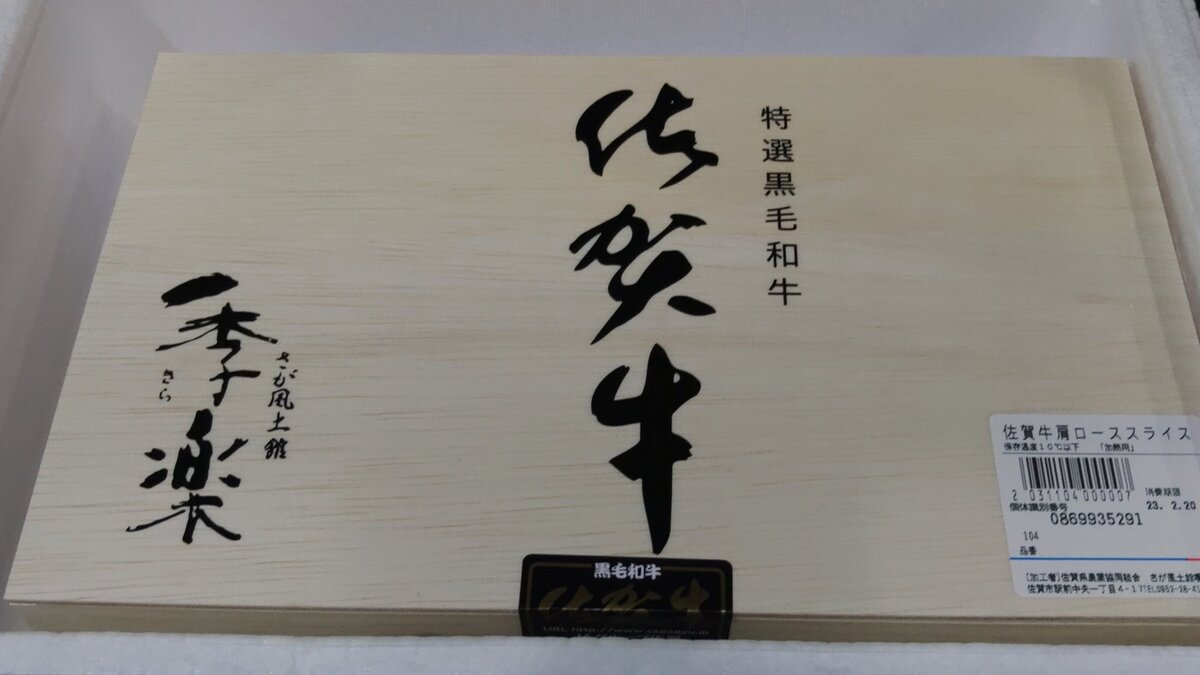 特選黒毛和牛
佐賀牛
さが風土館
季楽
きら
佐賀牛肩ローススライス
保存温度10℃以下 「加熱用」
2 031104 000007
消費期限
23. 2.20
個体識別番号
0869935291
104
品番
[加工者]佐賀県農業協同組合 さが風土館季
佐賀市駅前中央一丁目4-17TEL0952-28-41
黒毛和牛
佐賀牛